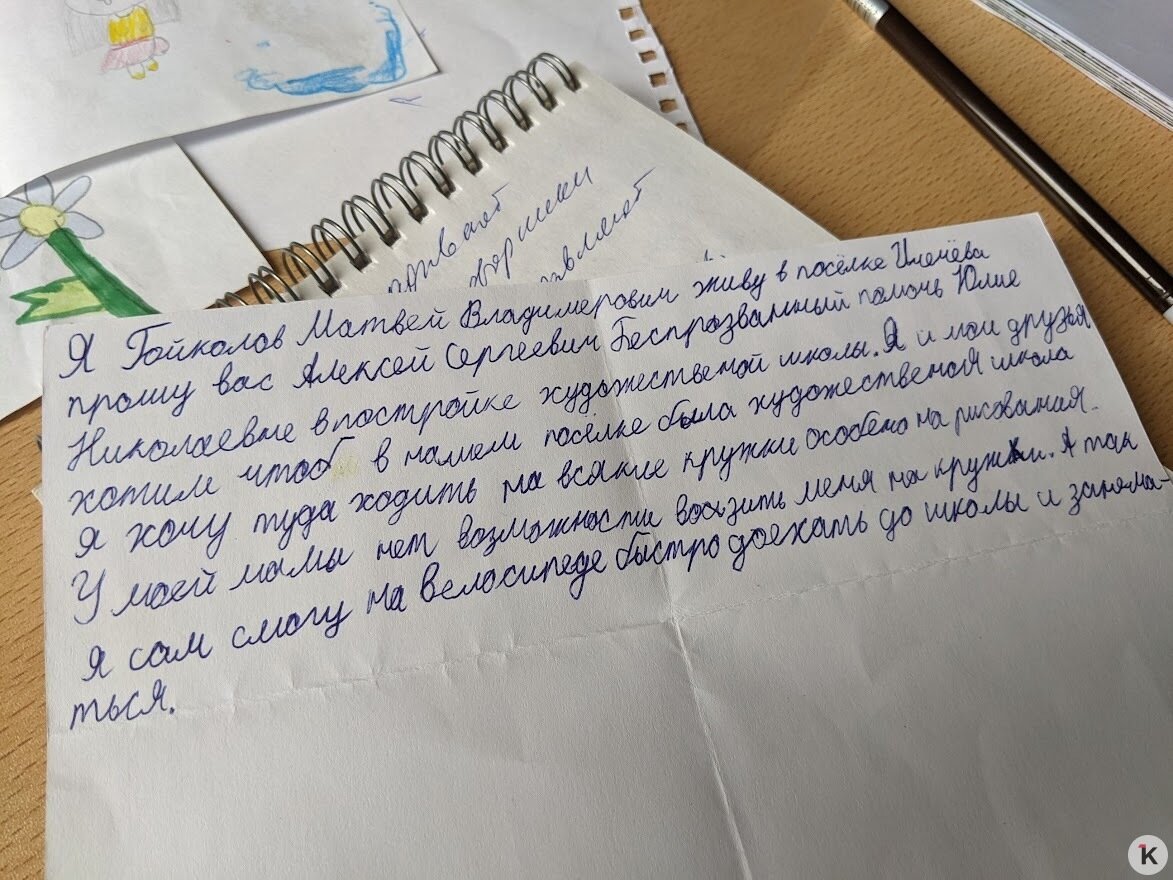 ворики
Я Гойколов Матвей Владимерович живу в посёлке Илечёва
прошу вас Алексей Сергеевич Беспрозванный помочь Юлие
Николаевне в постройке художественой школы. Я и мои друзья
хотим чтоб в нашем посёлке была художественоя школа
я хочу туда ходить на всякие кружки особено на рисования.
У моей мамы нет возможности возить меня на кружки. А так
я сам смогу на велосипеде быстро доехать до школы и занема-
ться.
К